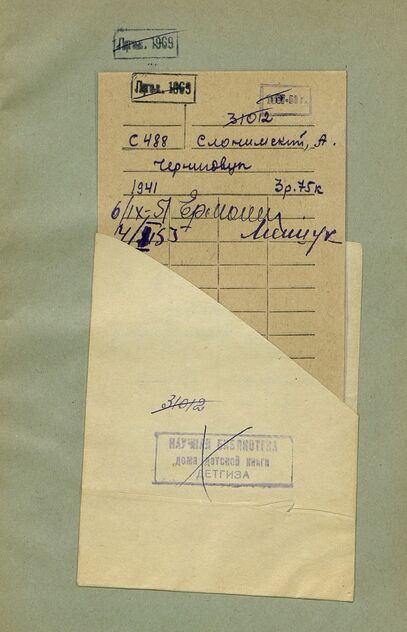 Провер. 1969
Провер. 1969
31012
С 488 Слонимский, А.
Черниговцы
1941 3 р. 75 к
6/IX-51 Ермолин
31012
НАУЧНАЯ БИБЛИОТЕКА
дома детской книги
ДЕТГИЗА